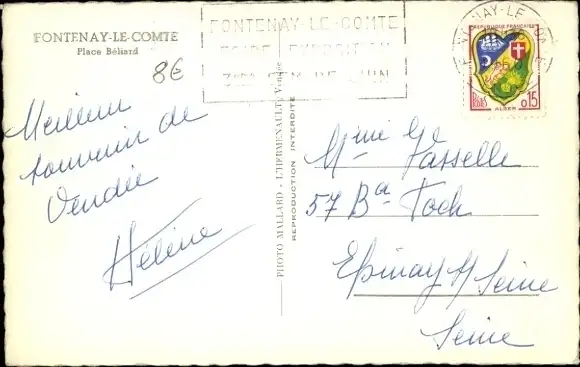 FONTENAY-LE-COMTE
Place Béliard
8€
FONTENAY-LE-COMTE
FOIRE EXPOSITION
DE JUIN
RÉPUBLIQUE FRANÇAISE
POSTES 0,15
ALGER
Meilleur
souvenir de
Vendée
Hélène
PHOTO MALLARD - L'HERMENAULT, Vendée
REPRODUCTION INTERDITE
Mme
57 Bd Foch
Epinay s/ Seine
Seine